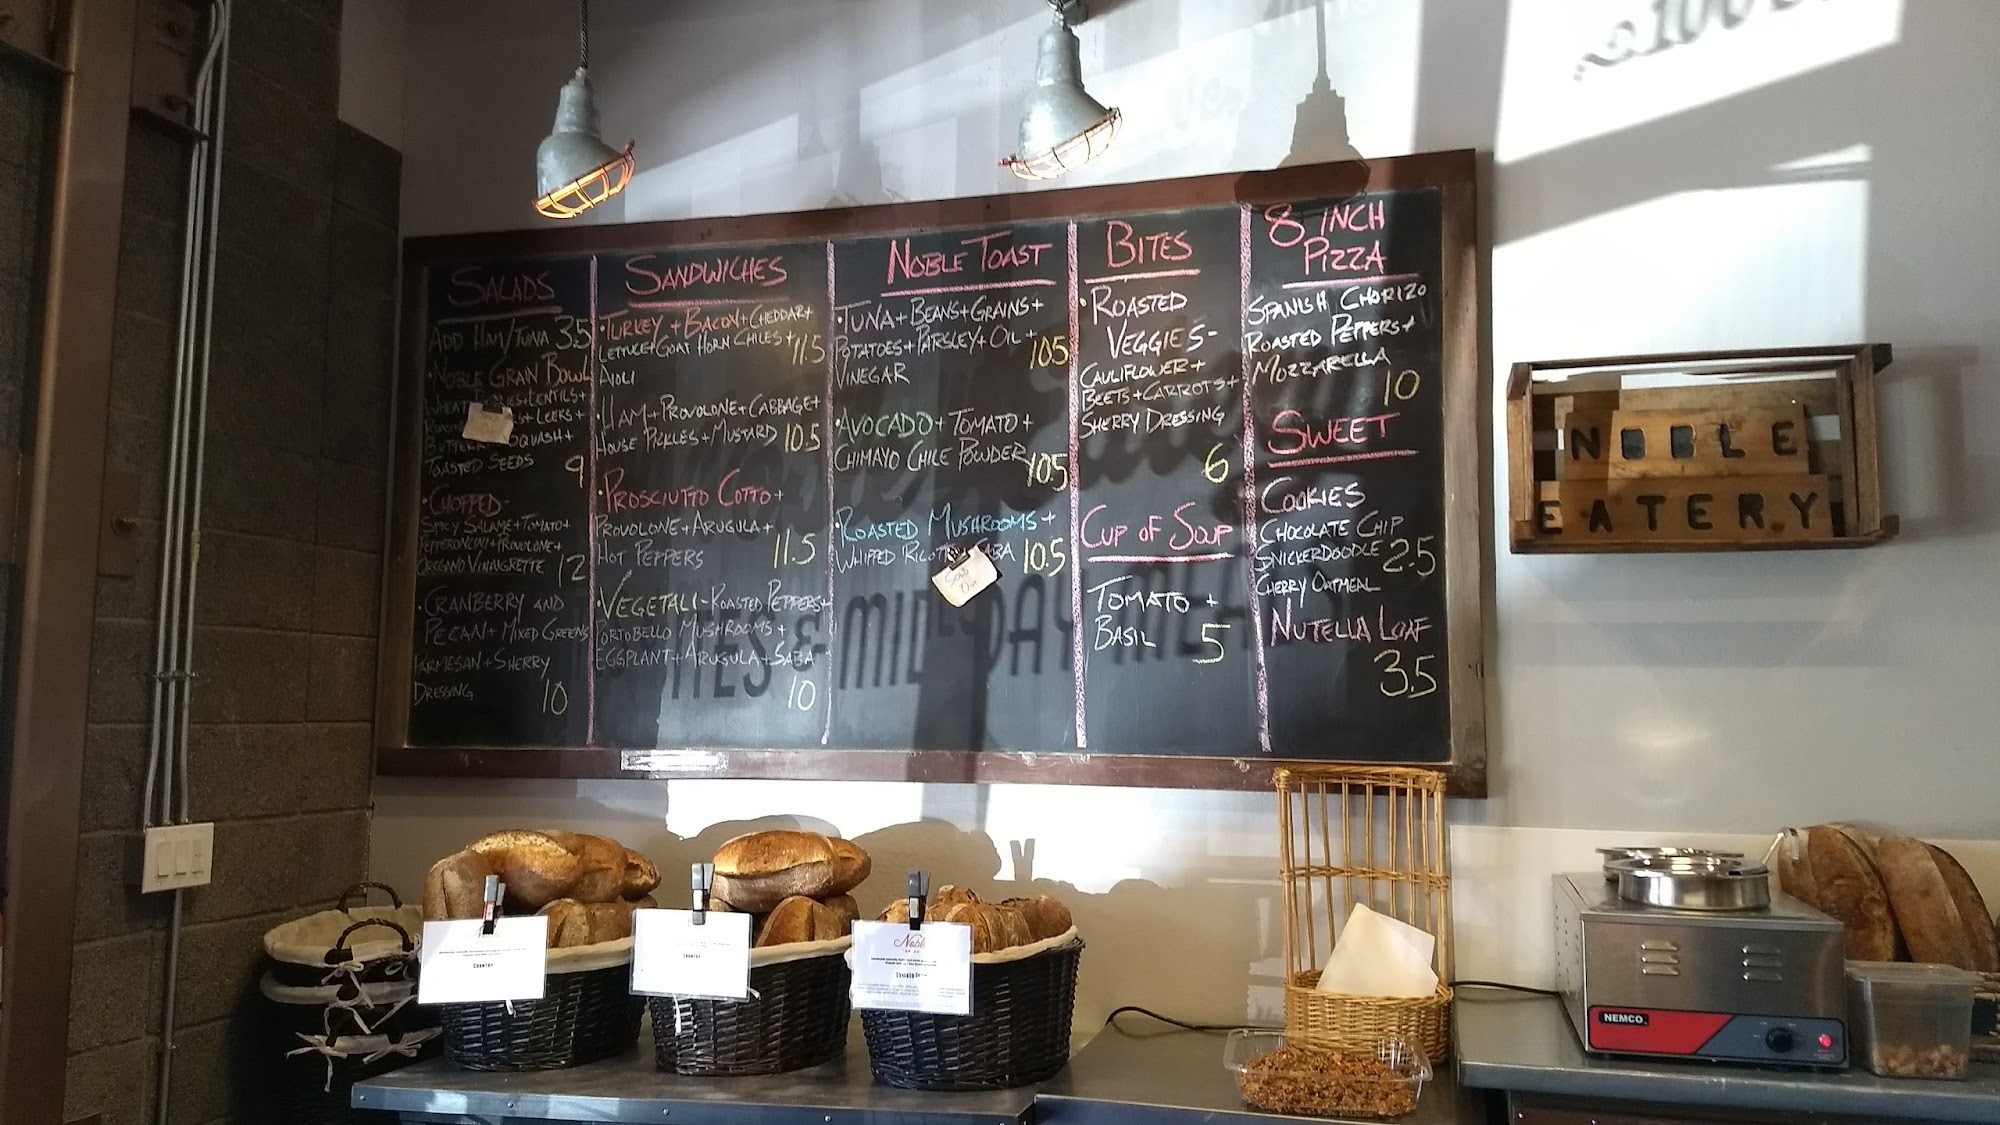 SALADS
ADD HAM/TUNA 3.5
• NOBLE GRAIN BOWL
WHEAT BERRIES + LENTILS +
LEEKS +
BUTTERNUT SQUASH +
TOASTED SEEDS 9
• CHOPPED -
SPICY SALAME + TOMATO +
PEPPERONCINI + PROVOLONE +
OREGANO VINAIGRETTE 12
• CRANBERRY AND
PECAN + MIXED GREENS
PARMESAN + SHERRY
DRESSING 10
SANDWICHES
• TURKEY + BACON + CHEDDAR +
LETTUCE + GOAT HORN CHILES + 11.5
AIOLI
• HAM + PROVOLONE + CABBAGE +
HOUSE PICKLES + MUSTARD 10.5
• PROSCIUTTO COTTO +
PROVOLONE + ARUGULA +
HOT PEPPERS 11.5
• VEGETALI - ROASTED PEPPERS +
PORTOBELLO MUSHROOMS +
EGGPLANT + ARUGULA + SABA
10
NOBLE TOAST
• TUNA + BEANS + GRAINS +
POTATOES + PARSLEY + OIL + 10.5
VINEGAR
• AVOCADO + TOMATO +
CHIMAYO CHILE POWDER
10.5
• ROASTED MUSHROOMS +
WHIPPED RICOTTA SABA 10.5
SOLD
OUT
BITES
• ROASTED
VEGGIES -
CAULIFLOWER +
BEETS + CARROTS +
SHERRY DRESSING
6
CUP OF SOUP
TOMATO +
BASIL 5
8 INCH
PIZZA
SPANISH CHORIZO
ROASTED PEPPERS +
MOZZARELLA
10
SWEET
COOKIES
CHOCOLATE CHIP
SNICKERDOODLE 2.5
CHERRY OATMEAL
NUTELLA LOAF
3.5
& MIDDAY
NOBLE
EATERY
COUNTRY
COUNTRY
Noble
NEMCO